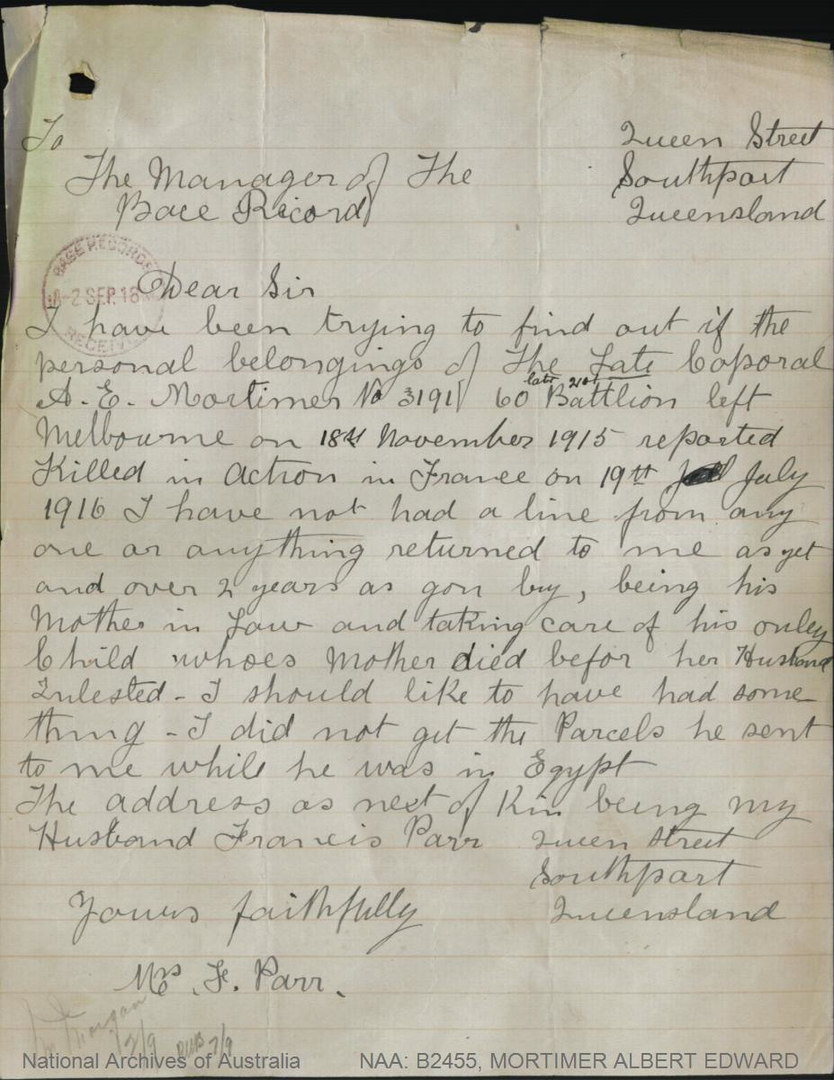 To
The Manager of The
Bace Record
Queen Street
Southport
Queensland
BASE RECORDS
2 SEP. 18
RECEIVED
Dear Sir
I have been trying to find out if the
personal belongings of The Late Coporal
A. E. Mortimer No 3191 60 late 21st Battlion left
Melbourne on 18th November 1915 reported
Killed in Action in France on 19th July
1916 I have not had a line from any
one or anything returned to me as yet
and over 2 years as gon by, being his
Mother in Law and taking care of his onley
Child whoes Mother died befor her Husband
Inlested - I should like to have had some
thing - I did not get the Parcels he sent
to me while he was in Egypt
The address as next of Kin being my
Husband Francis Parr Queen Street
Southport
Queensland
Yours faithfully
Mrs. F. Parr.
Morgan
2/9 7/9
National Archives of Australia NAA: B2455, MORTIMER ALBERT EDWARD